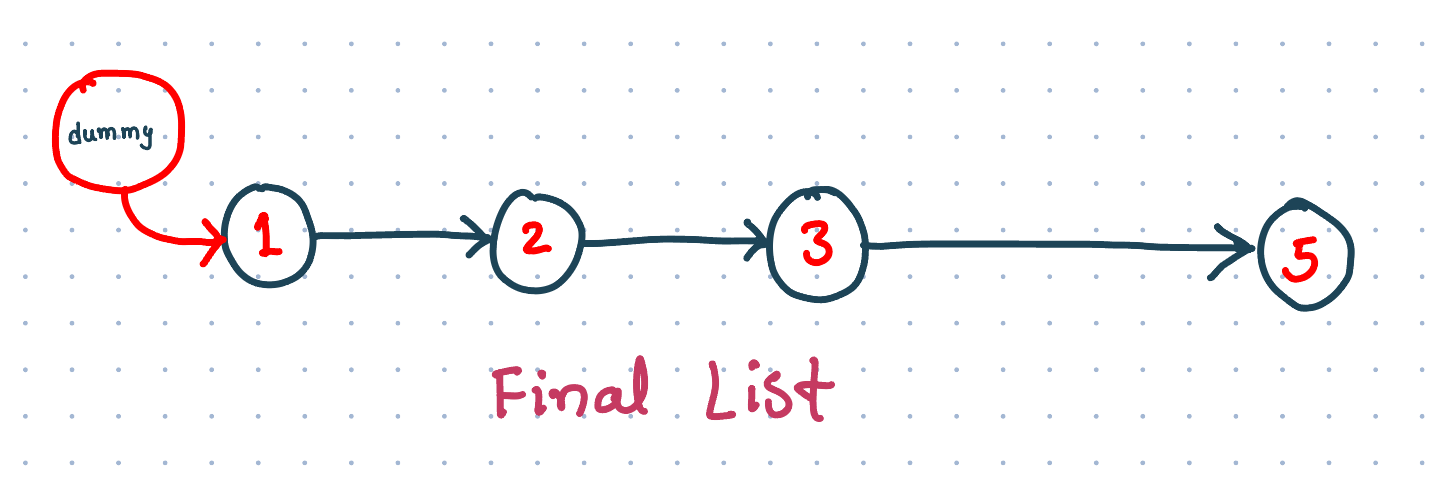 dummy
1 2 3 5
Final List